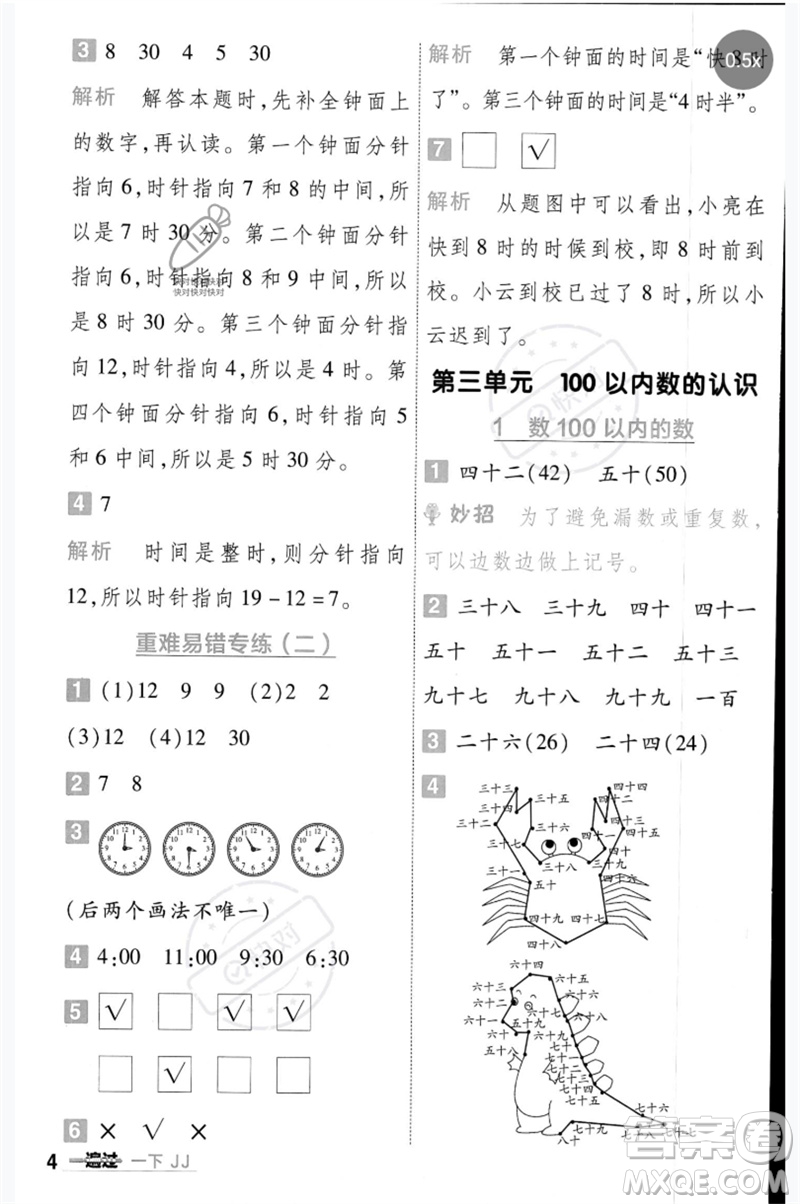 3 8 30 4 5 30
解析 解答本题时,先补全钟面上
的数字,再认读。第一个钟面分针
指向6,时针指向7和8的中间,所
以是7时30分。第二个钟面分针
指向6,时针指向8和9中间,所以
是8时30分。第三个钟面分针指
向12,时针指向4,所以是4时。第
四个钟面分针指向6,时针指向5
和6中间,所以是5时30分。
4 7
解析 时间是整时,则分针指向
12,所以时针指向19-12=7。
重难易错专练(二)
1 (1)12 9 9 (2)2 2
(3)12 (4)12 30
2 7 8
3
(后两个画法不唯一)
4 4:00 11:00 9:30 6:30
5 √ √ √
√
6 × √ ×
4 一遍过 一下 JJ
解析 第一个钟面的时间是“快8时
了”。第三个钟面的时间是“4时半”。
0.5x
7 √
解析 从题图中可以看出,小亮在
快到8时的时候到校,即8时前到
校。小云到校已过了8时,所以小
云迟到了。
第三单元 100以内数的认识
1 数100以内的数
1 四十二(42) 五十(50)
妙招 为了避免漏数或重复数,
可以边数边做上记号。
2 三十八 三十九 四十 四十一
五十 五十一 五十二 五十三
九十七 九十八 九十九 一百
3 二十六(26) 二十四(24)
4
三十三 四十四
三十五 四十二
三十二 三十六 四十六 四十五
三十八 三十九
三十一 五十 四十
四十九 四十七
四十八
六十四
六十三 六十五
六十二
六十一 五十九
五十八
七十一
七十六
七十七
八十
七十九
答案圈
MXQE.COM
快对快对快对